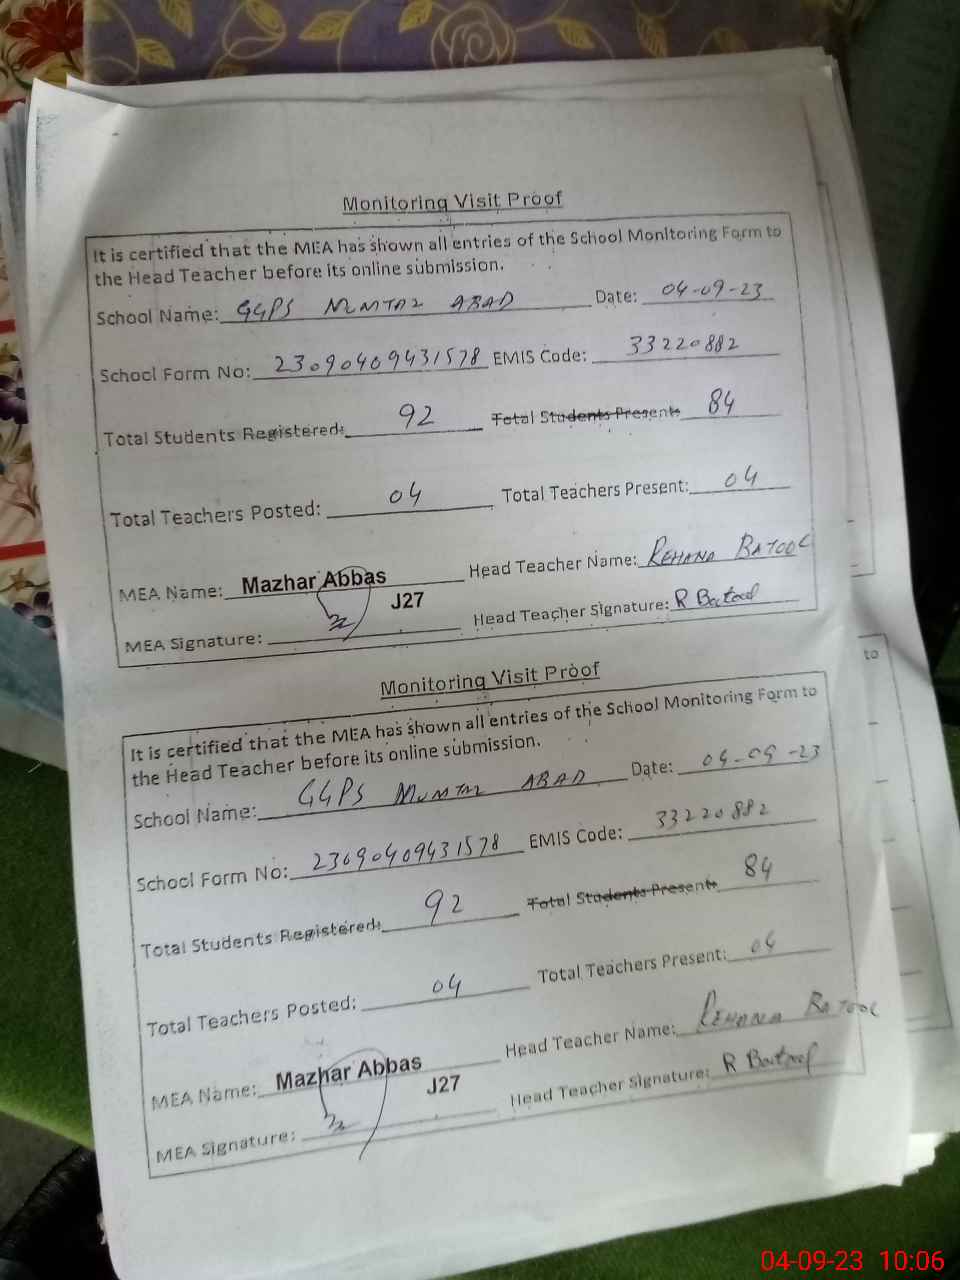 Monitoring Visit Proof
It is certified that the MEA has shown all entries of the School Monitoring Form to
the Head Teacher before its online submission.
School Name: GGPS MUMTAZ ABAD Date: 04-09-23
School Form No: 23090409431578 EMIS Code: 33220882
Total Students Registered: 92 Total Students Present: 84
Total Teachers Posted: 04 Total Teachers Present: 04
MEA Name: Mazhar Abbas Head Teacher Name: REHANA BATOOL
J27
MEA Signature: Head Teacher Signature: R Batool
Monitoring Visit Proof
It is certified that the MEA has shown all entries of the School Monitoring Form to
the Head Teacher before its online submission.
School Name: GGPS MUMTAZ ABAD Date: 04-09-23
School Form No: 23090409431578 EMIS Code: 33220882
Total Students Registered: 92 Total Students Present: 84
Total Teachers Posted: 04 Total Teachers Present: 04
MEA Name: Mazhar Abbas Head Teacher Name: REHANA BATOOL
J27
MEA Signature: Head Teacher Signature: R Batool
to
04-09-23 10:06